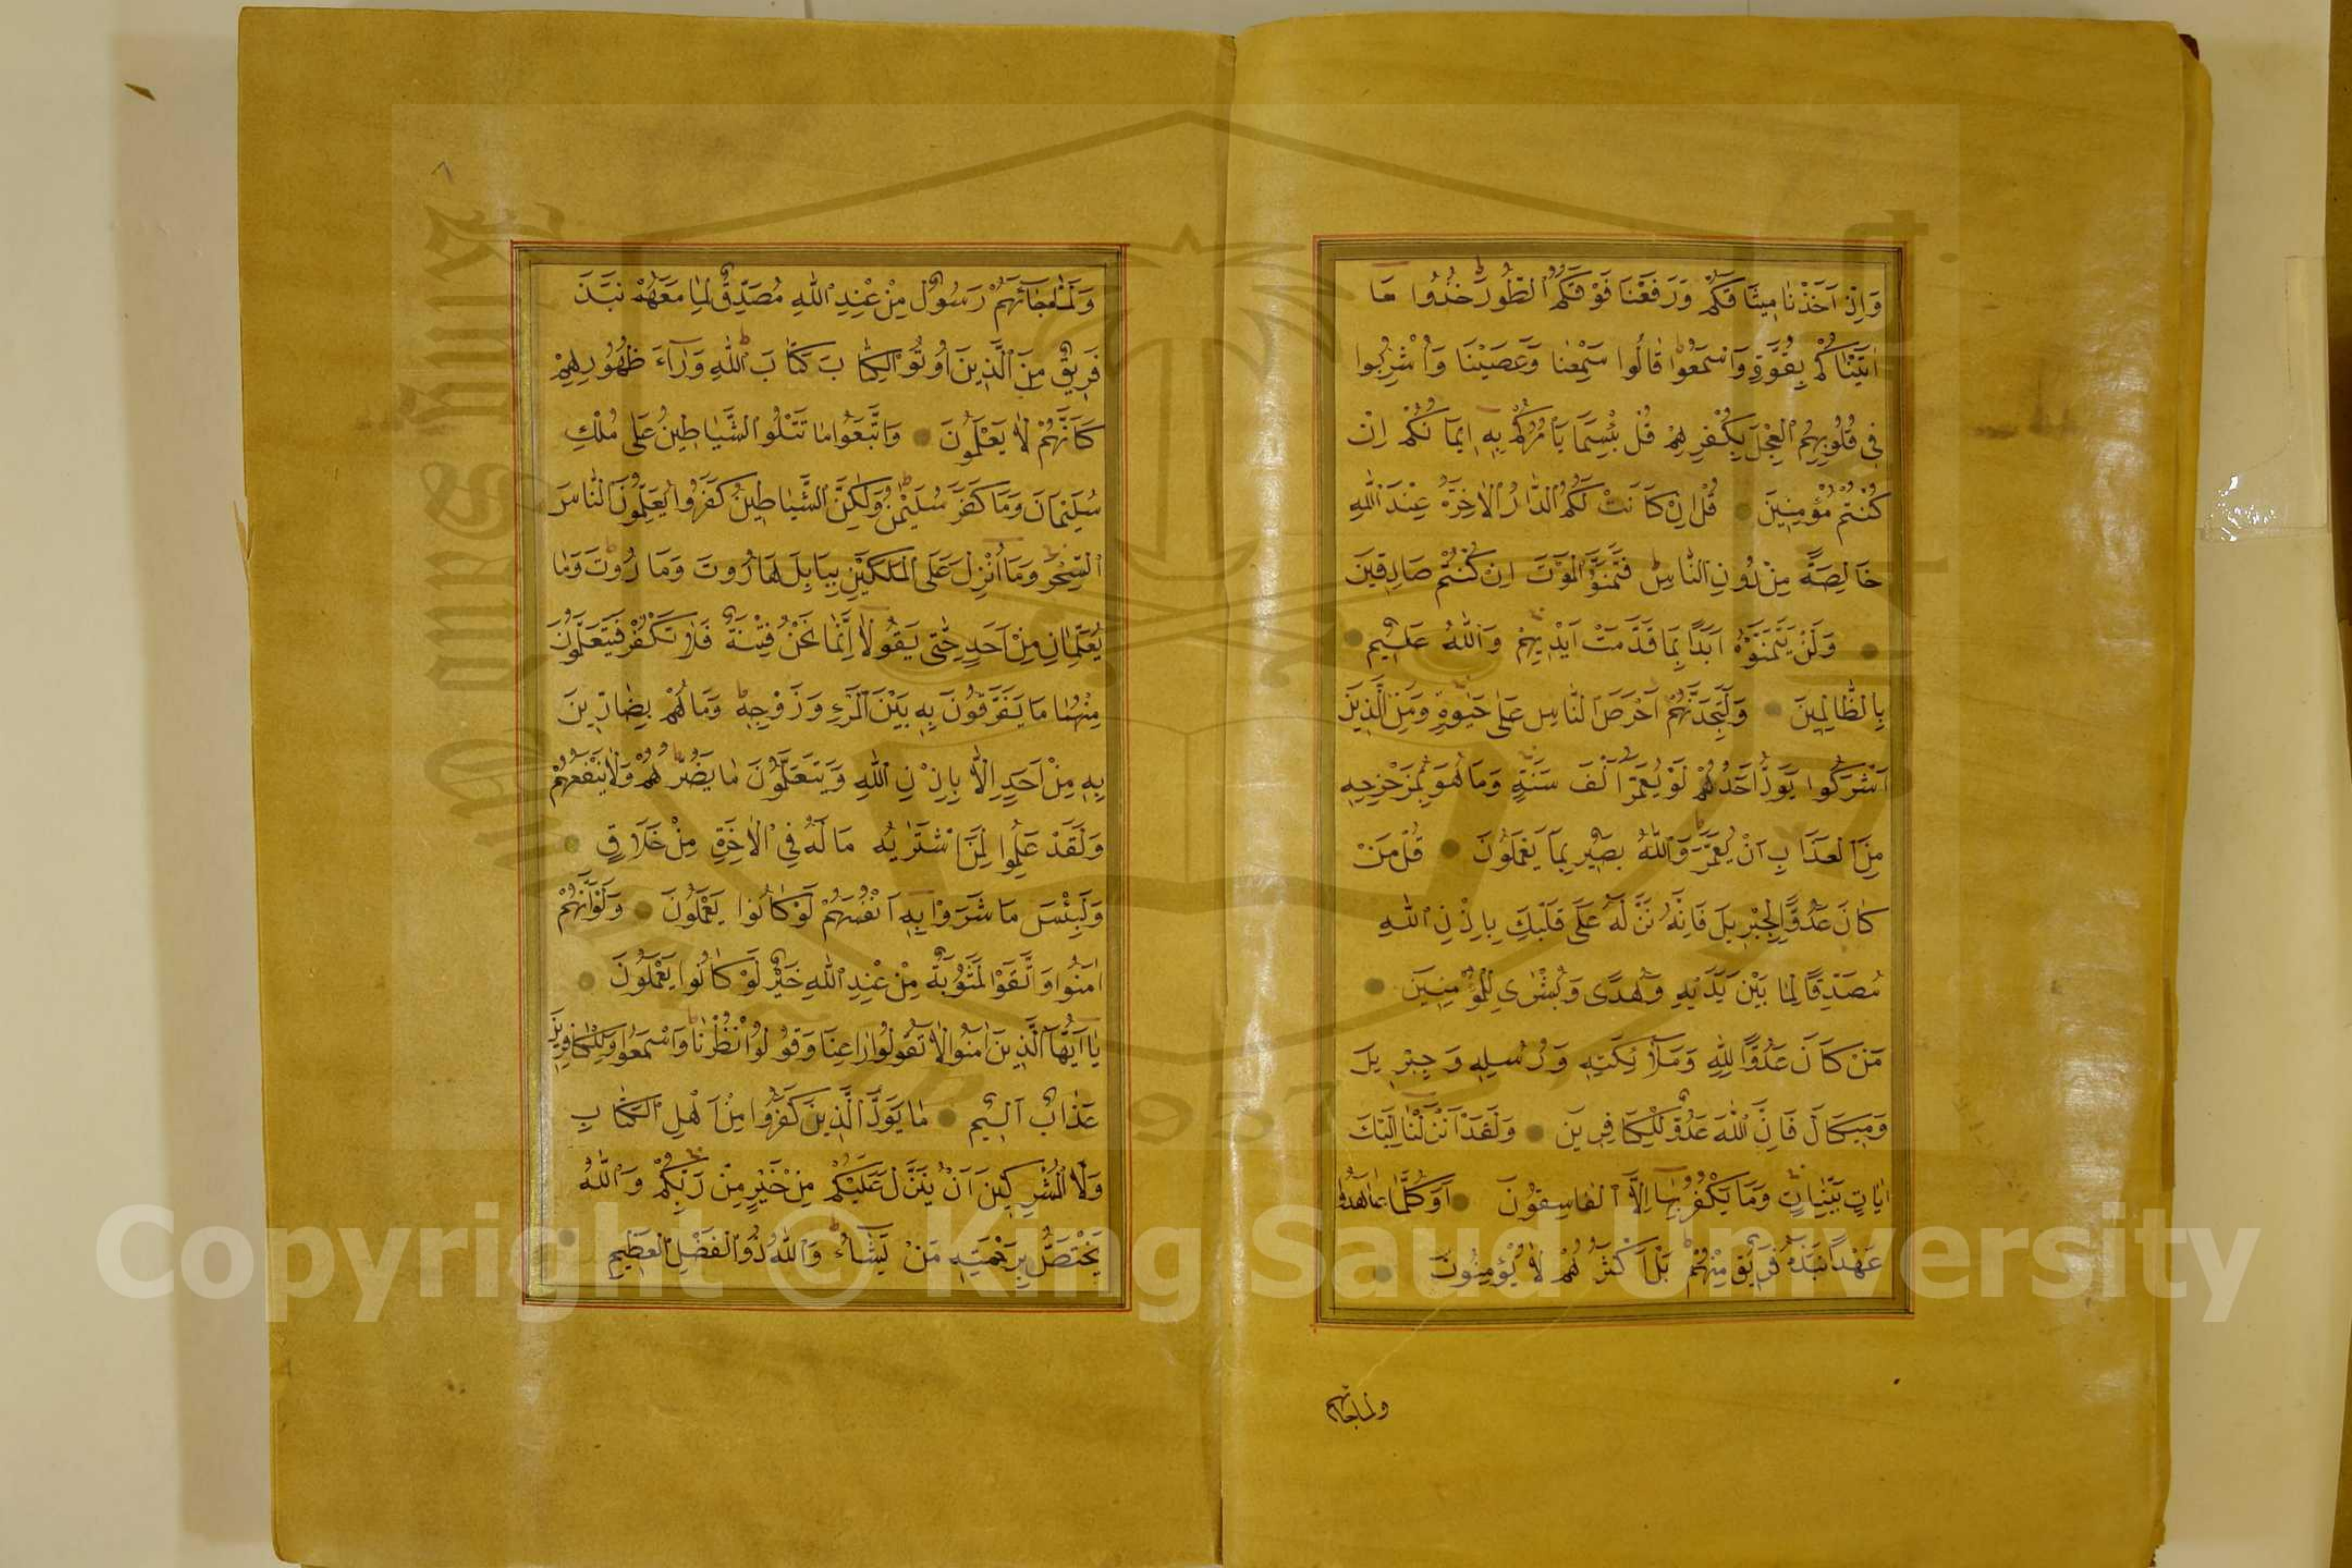 وَاِذْ اَخَذْنَا مِيثَاقَكُمْ وَرَفَعْنَا فَوْقَكُمُ الطُّورَ خُذُوا مَا
اٰتَيْنَاكُمْ بِقُوَّةٍ وَاسْمَعُوا قَالُوا سَمِعْنَا وَعَصَيْنَا وَاُشْرِبُوا
فِي قُلُوبِهِمُ الْعِجْلَ بِكُفْرِهِمْ قُلْ بِئْسَمَا يَأْمُرُكُمْ بِهِ اِيمَانُكُمْ اِنْ
كُنْتُمْ مُؤْمِنِينَ قُلْ اِنْ كَانَتْ لَكُمُ الدَّارُ الْاٰخِرَةُ عِنْدَ اللّٰهِ
خَالِصَةً مِنْ دُونِ النَّاسِ فَتَمَنَّوُا الْمَوْتَ اِنْ كُنْتُمْ صَادِقِينَ
وَلَنْ يَتَمَنَّوْهُ اَبَدًا بِمَا قَدَّمَتْ اَيْدِيهِمْ وَاللّٰهُ عَلِيمٌ
بِالظَّالِمِينَ وَلَتَجِدَنَّهُمْ اَحْرَصَ النَّاسِ عَلٰى حَيٰوةٍ وَمِنَ الَّذِينَ
اَشْرَكُوا يَوَدُّ اَحَدُهُمْ لَوْ يُعَمَّرُ اَلْفَ سَنَةٍ وَمَا هُوَ بِمُزَحْزِحِهِ
مِنَ الْعَذَابِ اَنْ يُعَمَّرَ وَاللّٰهُ بَصِيرٌ بِمَا يَعْمَلُونَ قُلْ مَنْ
كَانَ عَدُوًّا لِجِبْرِيلَ فَاِنَّهُ نَزَّلَهُ عَلٰى قَلْبِكَ بِاِذْنِ اللّٰهِ
مُصَدِّقًا لِمَا بَيْنَ يَدَيْهِ وَهُدًى وَبُشْرٰى لِلْمُؤْمِنِينَ
مَنْ كَانَ عَدُوًّا لِلّٰهِ وَمَلٰٓئِكَتِهِ وَرُسُلِهِ وَجِبْرِيلَ
وَمِيكَالَ فَاِنَّ اللّٰهَ عَدُوٌّ لِلْكَافِرِينَ وَلَقَدْ اَنْزَلْنَا اِلَيْكَ
اٰيَاتٍ بَيِّنَاتٍ وَمَا يَكْفُرُ بِهَا اِلَّا الْفَاسِقُونَ اَوَكُلَّمَا عَاهَدُوا
عَهْدًا نَبَذَهُ فَرِيقٌ مِنْهُمْ بَلْ اَكْثَرُهُمْ لَا يُؤْمِنُونَ
ولما جائهم
وَلَمَّا جَآئَهُمْ رَسُولٌ مِنْ عِنْدِ اللّٰهِ مُصَدِّقٌ لِمَا مَعَهُمْ نَبَذَ
فَرِيقٌ مِنَ الَّذِينَ اُوتُوا الْكِتَابَ كِتَابَ اللّٰهِ وَرَآءَ ظُهُورِهِمْ
كَاَنَّهُمْ لَا يَعْلَمُونَ وَاتَّبَعُوا مَا تَتْلُوا الشَّيَاطِينُ عَلٰى مُلْكِ
سُلَيْمَانَ وَمَا كَفَرَ سُلَيْمٰنُ وَلٰكِنَّ الشَّيَاطِينَ كَفَرُوا يُعَلِّمُونَ النَّاسَ
السِّحْرَ وَمَا اُنْزِلَ عَلَى الْمَلَكَيْنِ بِبَابِلَ هَارُوتَ وَمَارُوتَ وَمَا
يُعَلِّمَانِ مِنْ اَحَدٍ حَتّٰى يَقُولَا اِنَّمَا نَحْنُ فِتْنَةٌ فَلَا تَكْفُرْ فَيَتَعَلَّمُونَ
مِنْهُمَا مَا يُفَرِّقُونَ بِهِ بَيْنَ الْمَرْءِ وَزَوْجِهِ وَمَا هُمْ بِضَارِّينَ
بِهِ مِنْ اَحَدٍ اِلَّا بِاِذْنِ اللّٰهِ وَيَتَعَلَّمُونَ مَا يَضُرُّهُمْ وَلَا يَنْفَعُهُمْ
وَلَقَدْ عَلِمُوا لَمَنِ اشْتَرٰيهُ مَا لَهُ فِي الْاٰخِرَةِ مِنْ خَلَاقٍ
وَلَبِئْسَ مَا شَرَوْا بِهِ اَنْفُسَهُمْ لَوْ كَانُوا يَعْلَمُونَ وَلَوْ اَنَّهُمْ
اٰمَنُوا وَاتَّقَوْا لَمَثُوبَةٌ مِنْ عِنْدِ اللّٰهِ خَيْرٌ لَوْ كَانُوا يَعْلَمُونَ
يَا اَيُّهَا الَّذِينَ اٰمَنُوا لَا تَقُولُوا رَاعِنَا وَقُولُوا انْظُرْنَا وَاسْمَعُوا وَلِلْكَافِرِينَ
عَذَابٌ اَلِيمٌ مَا يَوَدُّ الَّذِينَ كَفَرُوا مِنْ اَهْلِ الْكِتَابِ
وَلَا الْمُشْرِكِينَ اَنْ يُنَزَّلَ عَلَيْكُمْ مِنْ خَيْرٍ مِنْ رَبِّكُمْ وَاللّٰهُ
يَخْتَصُّ بِرَحْمَتِهِ مَنْ يَشَاءُ وَاللّٰهُ ذُو الْفَضْلِ الْعَظِيمِ
King Saud University
1957
Copyright © King Saud University